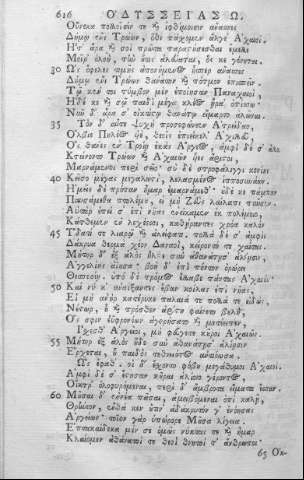 616 ΟΔΥΣΣΕΙΑΣ Ω.
Οὕνεκα πολλοῖσίν τε καὶ ἰφθίμοισιν ἄνασσες
Δήμῳ ἔνι Τρώων, ὅθι πάσχομεν ἄλγε' Ἀχαιοί.
Ἦ τ' ἄρα καὶ σοὶ πρῶτα παραστήσεσθαι ἔμελλε
Μοῖρ' ὀλοὴ, τὴν οὔτις ἀλεύεται, ὅς κε γένηται.
30 Ὡς ὄφελες τιμῆς ἀπονήμενος ἧσπερ ἄνασσες
Δήμῳ ἔνι Τρώων θάνατον καὶ πότμον ἐπισπεῖν·
Τῷ κέν τοι τύμβον μὲν ἐποίησαν Παναχαιοὶ,
Ἠδέ κε καὶ σῷ παιδὶ μέγα κλέος ἤρα' ὀπίσσω·
Νῦν δ' ἄρα σ' οἰκτίστῳ θανάτῳ εἵμαρτο ἁλῶναι.
35 Τὸν δ' αὖτε ψυχὴ προσεφώνεεν Ἀτρείδαο,
Ὄλβιε Πηλέος υἱὲ, θεοῖς ἐπιείκελ' Ἀχιλλεῦ,
Ὃς θάνες ἐν Τροίῃ ἑκὰς Ἄργεος, ἀμφὶ δέ σ' ἄλλοι
Κτείνοντο Τρώων καὶ Ἀχαιῶν υἷες ἄριστοι,
Μαρνάμενοι περὶ σεῖο· σὺ δὲ στροφάλιγγι κονίης
40 Κεῖσο μέγας μεγαλωστὶ, λελασμένος ἱπποσυνάων.
Ἡμεῖς δὲ πρόπαν ἦμαρ ἐμαρνάμεθ'· οὐδέ κε πάμπαν
Παυσάμεθα πτολέμου, εἰ μὴ Ζεὺς λαίλαπι παῦσεν.
Αὐτὰρ ἐπεί σ' ἐπὶ νῆας ἐνείκαμεν ἐκ πολέμοιο,
Κάτθεμεν ἐν λεχέεσσι, καθήραντες χρόα καλὸν
45 Ὕδατί τε λιαρῷ καὶ ἀλείφατι. πολλὰ δέ σ' ἀμφὶς
Δάκρυα θερμὰ χέον Δαναοὶ, κείροντό τε χαίτας.
Μήτηρ δ' ἐξ ἁλὸς ἦλθε σὺν ἀθανάτῃς ἁλίῃσιν,
Ἀγγελίης ἀΐουσα· βοὴ δ' ἐπὶ πόντον ὀρώρει
Θεσπεσίη. ὑπὸ δὲ τρόμος ἔλλαβε πάντας Ἀχαιούς·
50 Καί νύ κ' ἀναΐξαντες ἔβαν κοίλας ἐπὶ νῆας,
Εἰ μὴ ἀνὴρ κατέρυκε παλαιά τε πολλά τε εἰδὼς,
Νέστωρ, οὗ καὶ πρόσθεν ἀρίστη φαίνετο βουλή,
Ὅς σφιν ἐϋφρονέων ἀγορήσατο καὶ μετέειπεν,
Ἴσχεσθ' Ἀργεῖοι, μὴ φεύγετε κοῦροι Ἀχαιῶν.
55 Μήτηρ ἐξ ἁλὸς ἥδε σὺν ἀθανάτῃς ἁλίῃσιν
Ἔρχεται, οὗ παιδὸς τεθνηότος ἀντιόωσα.
Ὣς ἔφαθ'. οἱ δ' ἔσχοντο φόβου μεγάθυμοι Ἀχαιοί.
Ἀμφὶ δέ σ' ἔστησαν κοῦραι ἁλίοιο γέροντος,
Οἴκτρ' ὀλοφυρόμεναι, περὶ δ' ἄμβροτα εἵματα ἕσσαν.
60 Μοῦσαι δ' ἐννέα πᾶσαι, ἀμειβόμεναι ὀπὶ καλῇ,
Θρήνεον, ἔνθα κεν οὔτιν' ἀδάκρυτόν γ' ἐνόησας
Ἀργείων· τοῖον γὰρ ὑπώρορε Μοῦσα λίγεια.
Ἑπτακαίδεκα μέν σε ὁμῶς νύκτας τε καὶ ἦμαρ
Κλαίομεν ἀθάνατοί τε θεοὶ θνητοί τ' ἄνθρωποι·
65 Ὀκ-